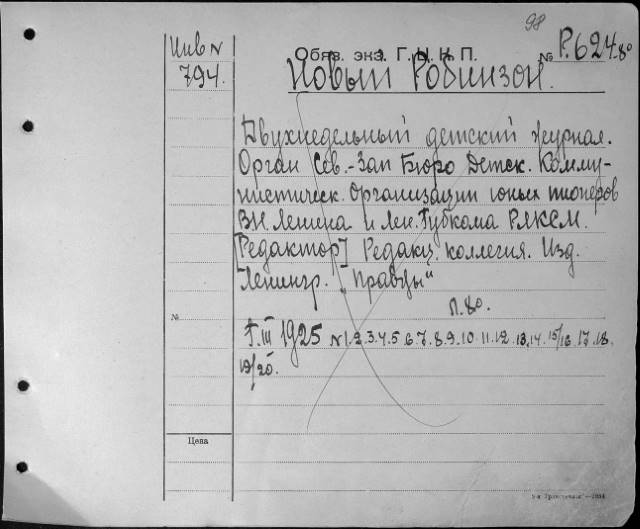 98
Инв N
794.
Обяз. экз. Г. Ц. К. П.
№ Р.624.8º
Новый Робинзон.
Двухнедельный детский журнал.
Орган Сев.-Зап Бюро Детск. Комму-
нистическ. Организации юных пионеров
ВН Ленина и Лен. Губкома РЛКСМ.
[Редактор] Редакц. коллегия. Изд.
Ленингр. "Правды"
Л. 8º.
№
Г. III 1925 N 1.2.3.4.5.6.7.8.9.10.11.12.13.14.15/16.17.18.
19/20.
Цена